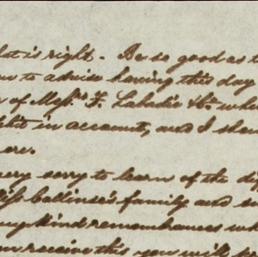 hat is right. Be so good as t
to advise having this day
of Mess. F. Labadie & Co wh
in account, and I sha
ere.
very sorry to learn of the di
family and
kind remembrances wh
receive this you will